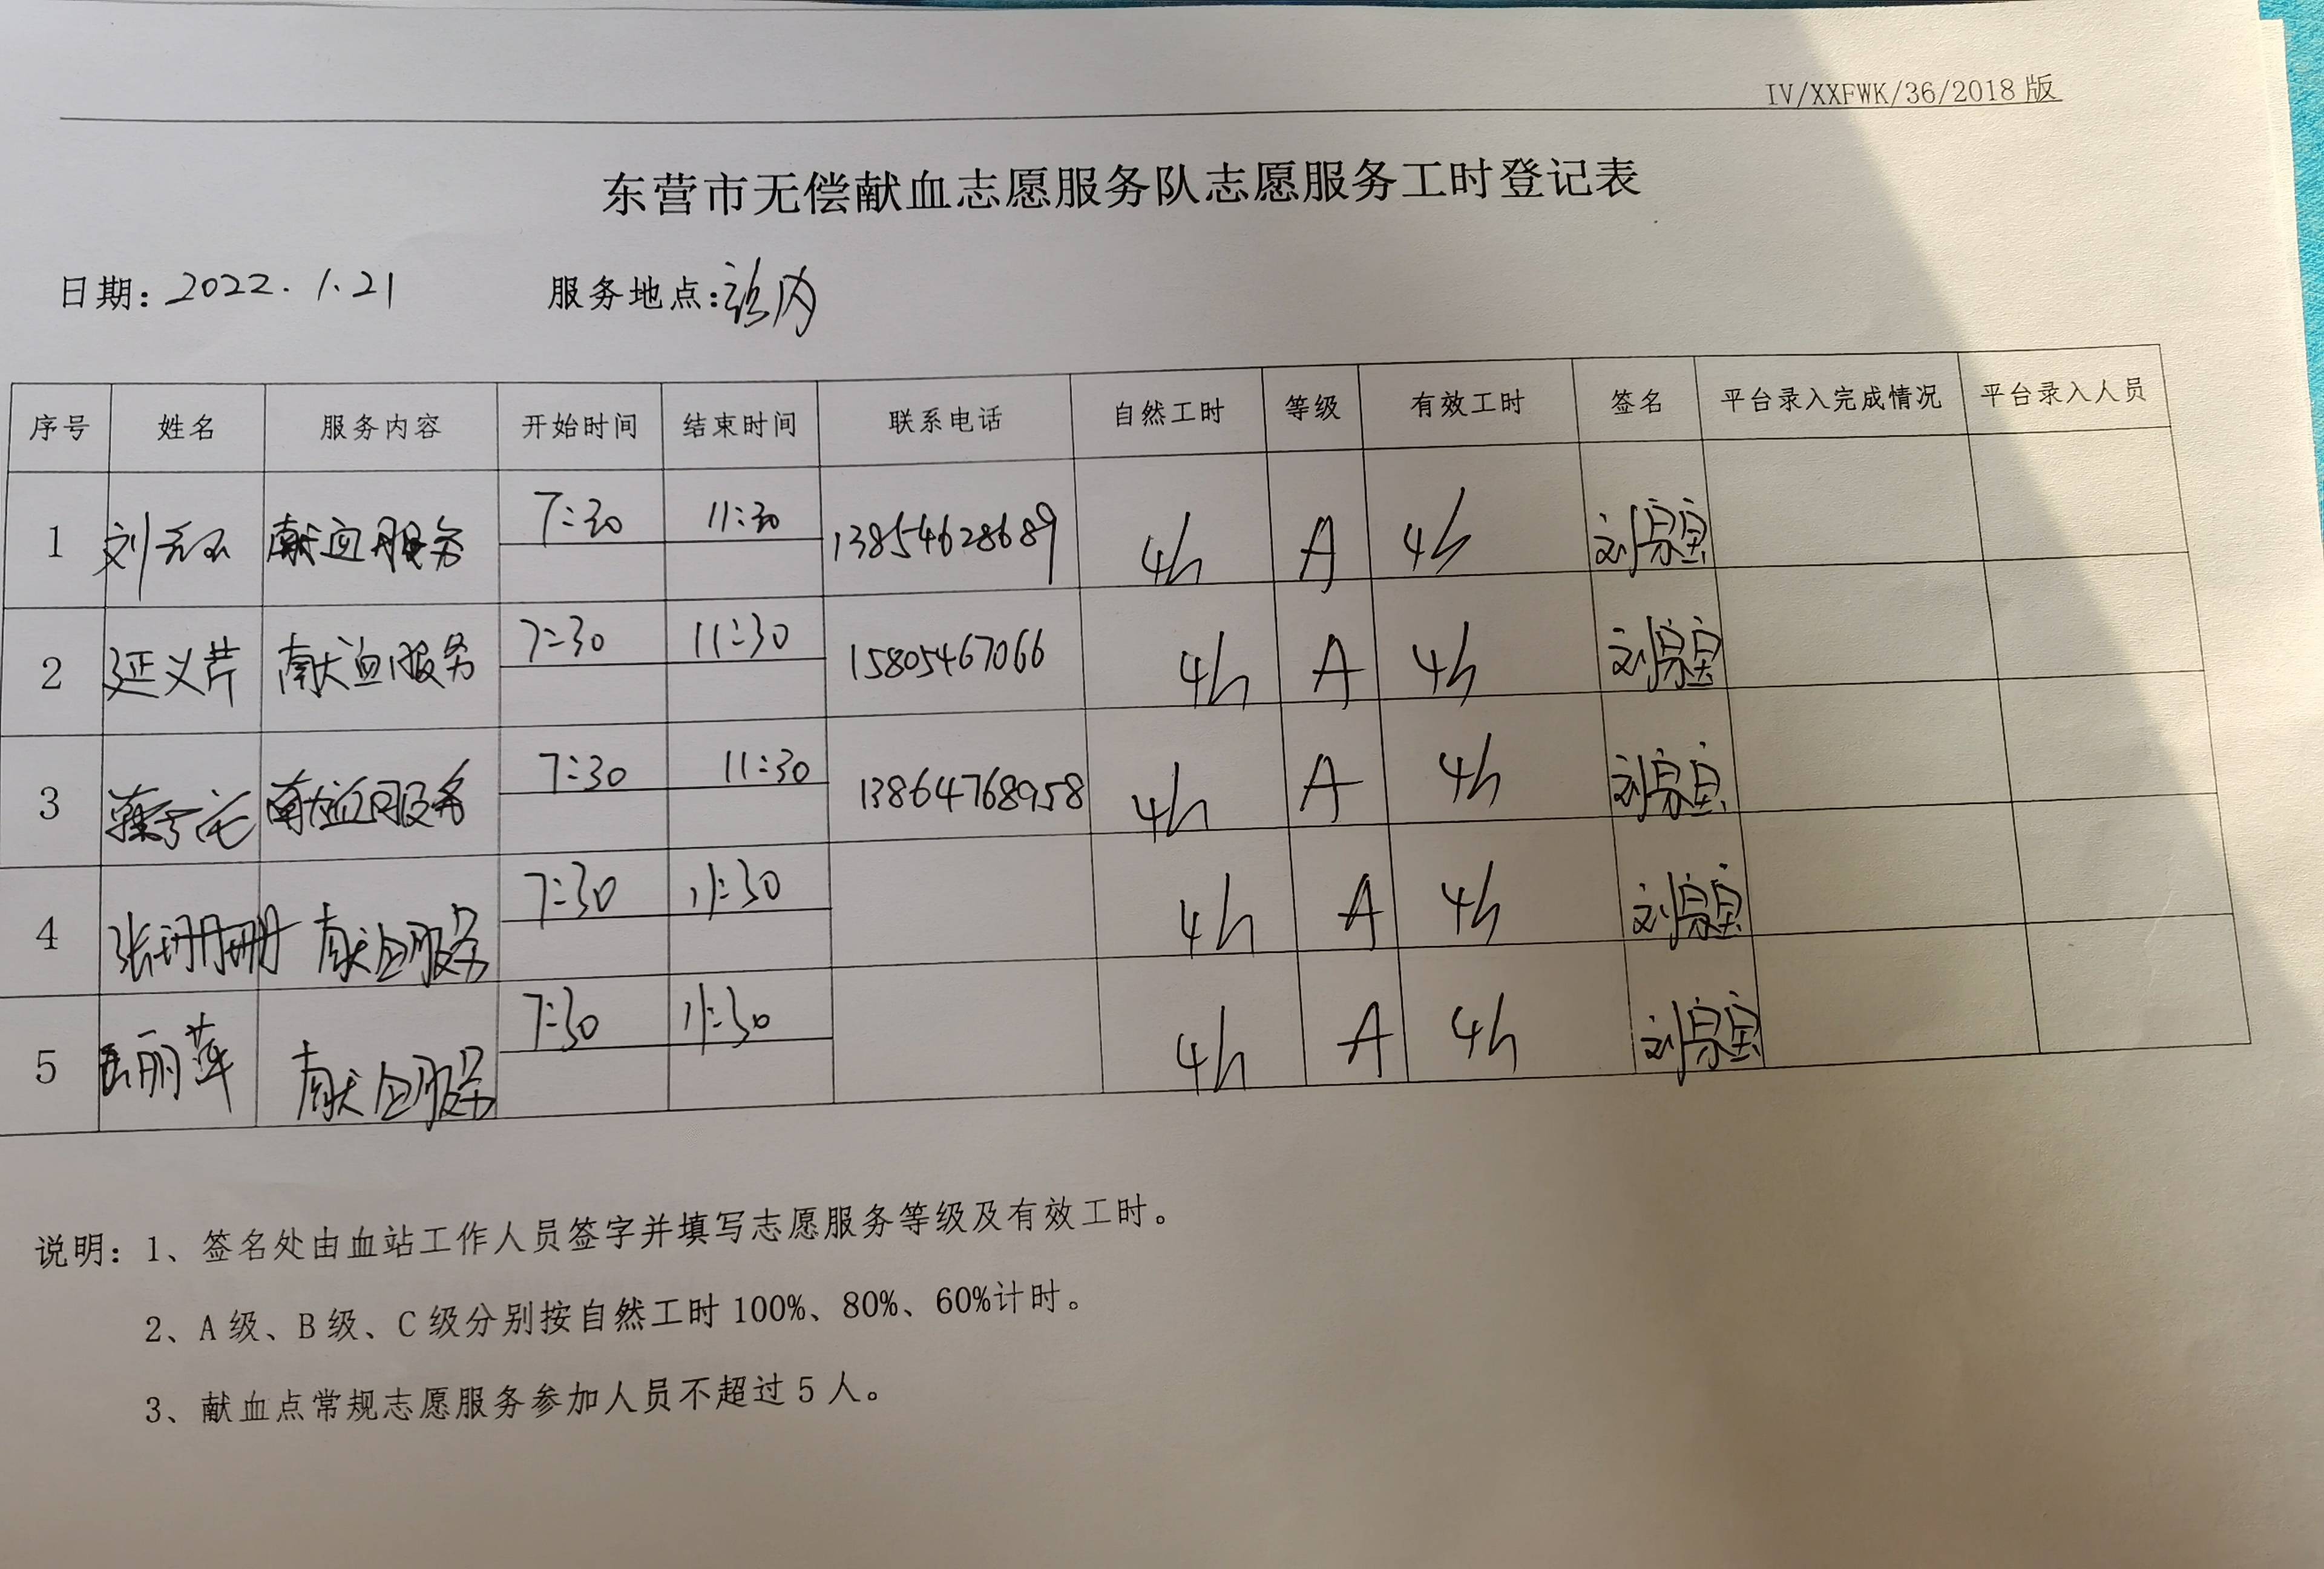 IV/XXFWK/36/2018版
东营市无偿献血志愿服务队志愿服务工时登记表
日期：2022.1.21 服务地点：站内
序号 姓名 服务内容 开始时间 结束时间 联系电话 自然工时 等级 有效工时 签名 平台录入完成情况 平台录入人员
1 刘 献血服务 7:30 11:30 13854628689 4h A 4h 刘宗宝
2 延义芹 献血服务 7:30 11:30 15805467066 4h A 4h 刘宗宝
3 献血服务 7:30 11:30 13864768958 4h A 4h 刘宗宝
4 张珊珊 献血服务 7:30 11:30 4h A 4h 刘宗宝
5 丽萍 献血服务 7:30 11:30 4h A 4h 刘宗宝
说明：1、签名处由血站工作人员签字并填写志愿服务等级及有效工时。
2、A级、B级、C级分别按自然工时100%、80%、60%计时。
3、献血点常规志愿服务参加人员不超过5人。